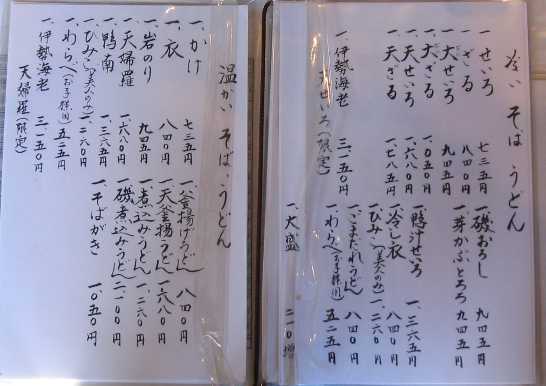 冷い そば うどん
一、せいろ 七三五円
一、ざる 八四〇円
一、大せいろ 九四五円
一、大ざる 一、〇五〇円
一、天せいろ 一、六八〇円
一、天ざる 一、七八五円
一、伊勢海老 三、一五〇円
天せいろ(限定)
一、磯おろし 九四五円
一、芽かぶとろろ 九四五円
一、鴨汁せいろ 一、三六五円
一、冷し衣 八四〇円
一、ひみこ(美人のみ) 一、二六〇円
一、ごまだれうどん 八四〇円
一、わらべ(お子様用) 五二五円
一、大盛 二一〇増
温かい そば、うどん
一、かけ 七三五円
一、衣 八四〇円
一、岩のり 九四五円
一、天婦羅 一、六八〇円
一、鴨南 一、三六五円
一、ひみこ(美人のみ) 一、二六〇円
一、わらべ(お子様用) 五二五円
一、伊勢海老 三、一五〇円
天婦羅(限定)
一、釜揚げうどん 八四〇円
一、天釜揚うどん 一、六八〇円
一、煮込みうどん 一、二六〇円
一、磯煮込みうどん 二、一〇〇円
一、そばがき 一、〇五〇円